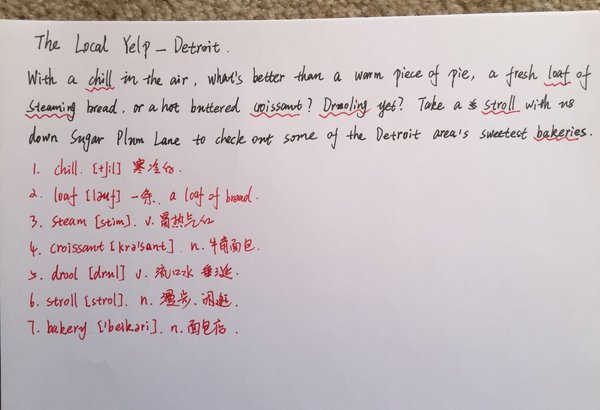 The Local Yelp - Detroit.
With a chill in the air, what's better than a warm piece of pie, a fresh loaf of
steaming bread, or a hot buttered croissant? Drooling yet? Take a stroll with us
down Sugar Plum Lane to check out some of the Detroit area's sweetest bakeries.
1. chill. [tʃil] 寒冷的.
2. loaf [ləuf] 一条. a loaf of bread.
3. steam [stim]. v. 冒热气
4. croissant [krə'sant]. n. 牛角面包.
5. drool [drul] v. 流口水 垂涎.
6. stroll [strol]. n. 漫步. 闲逛.
7. bakery ['beikəri]. n. 面包店.